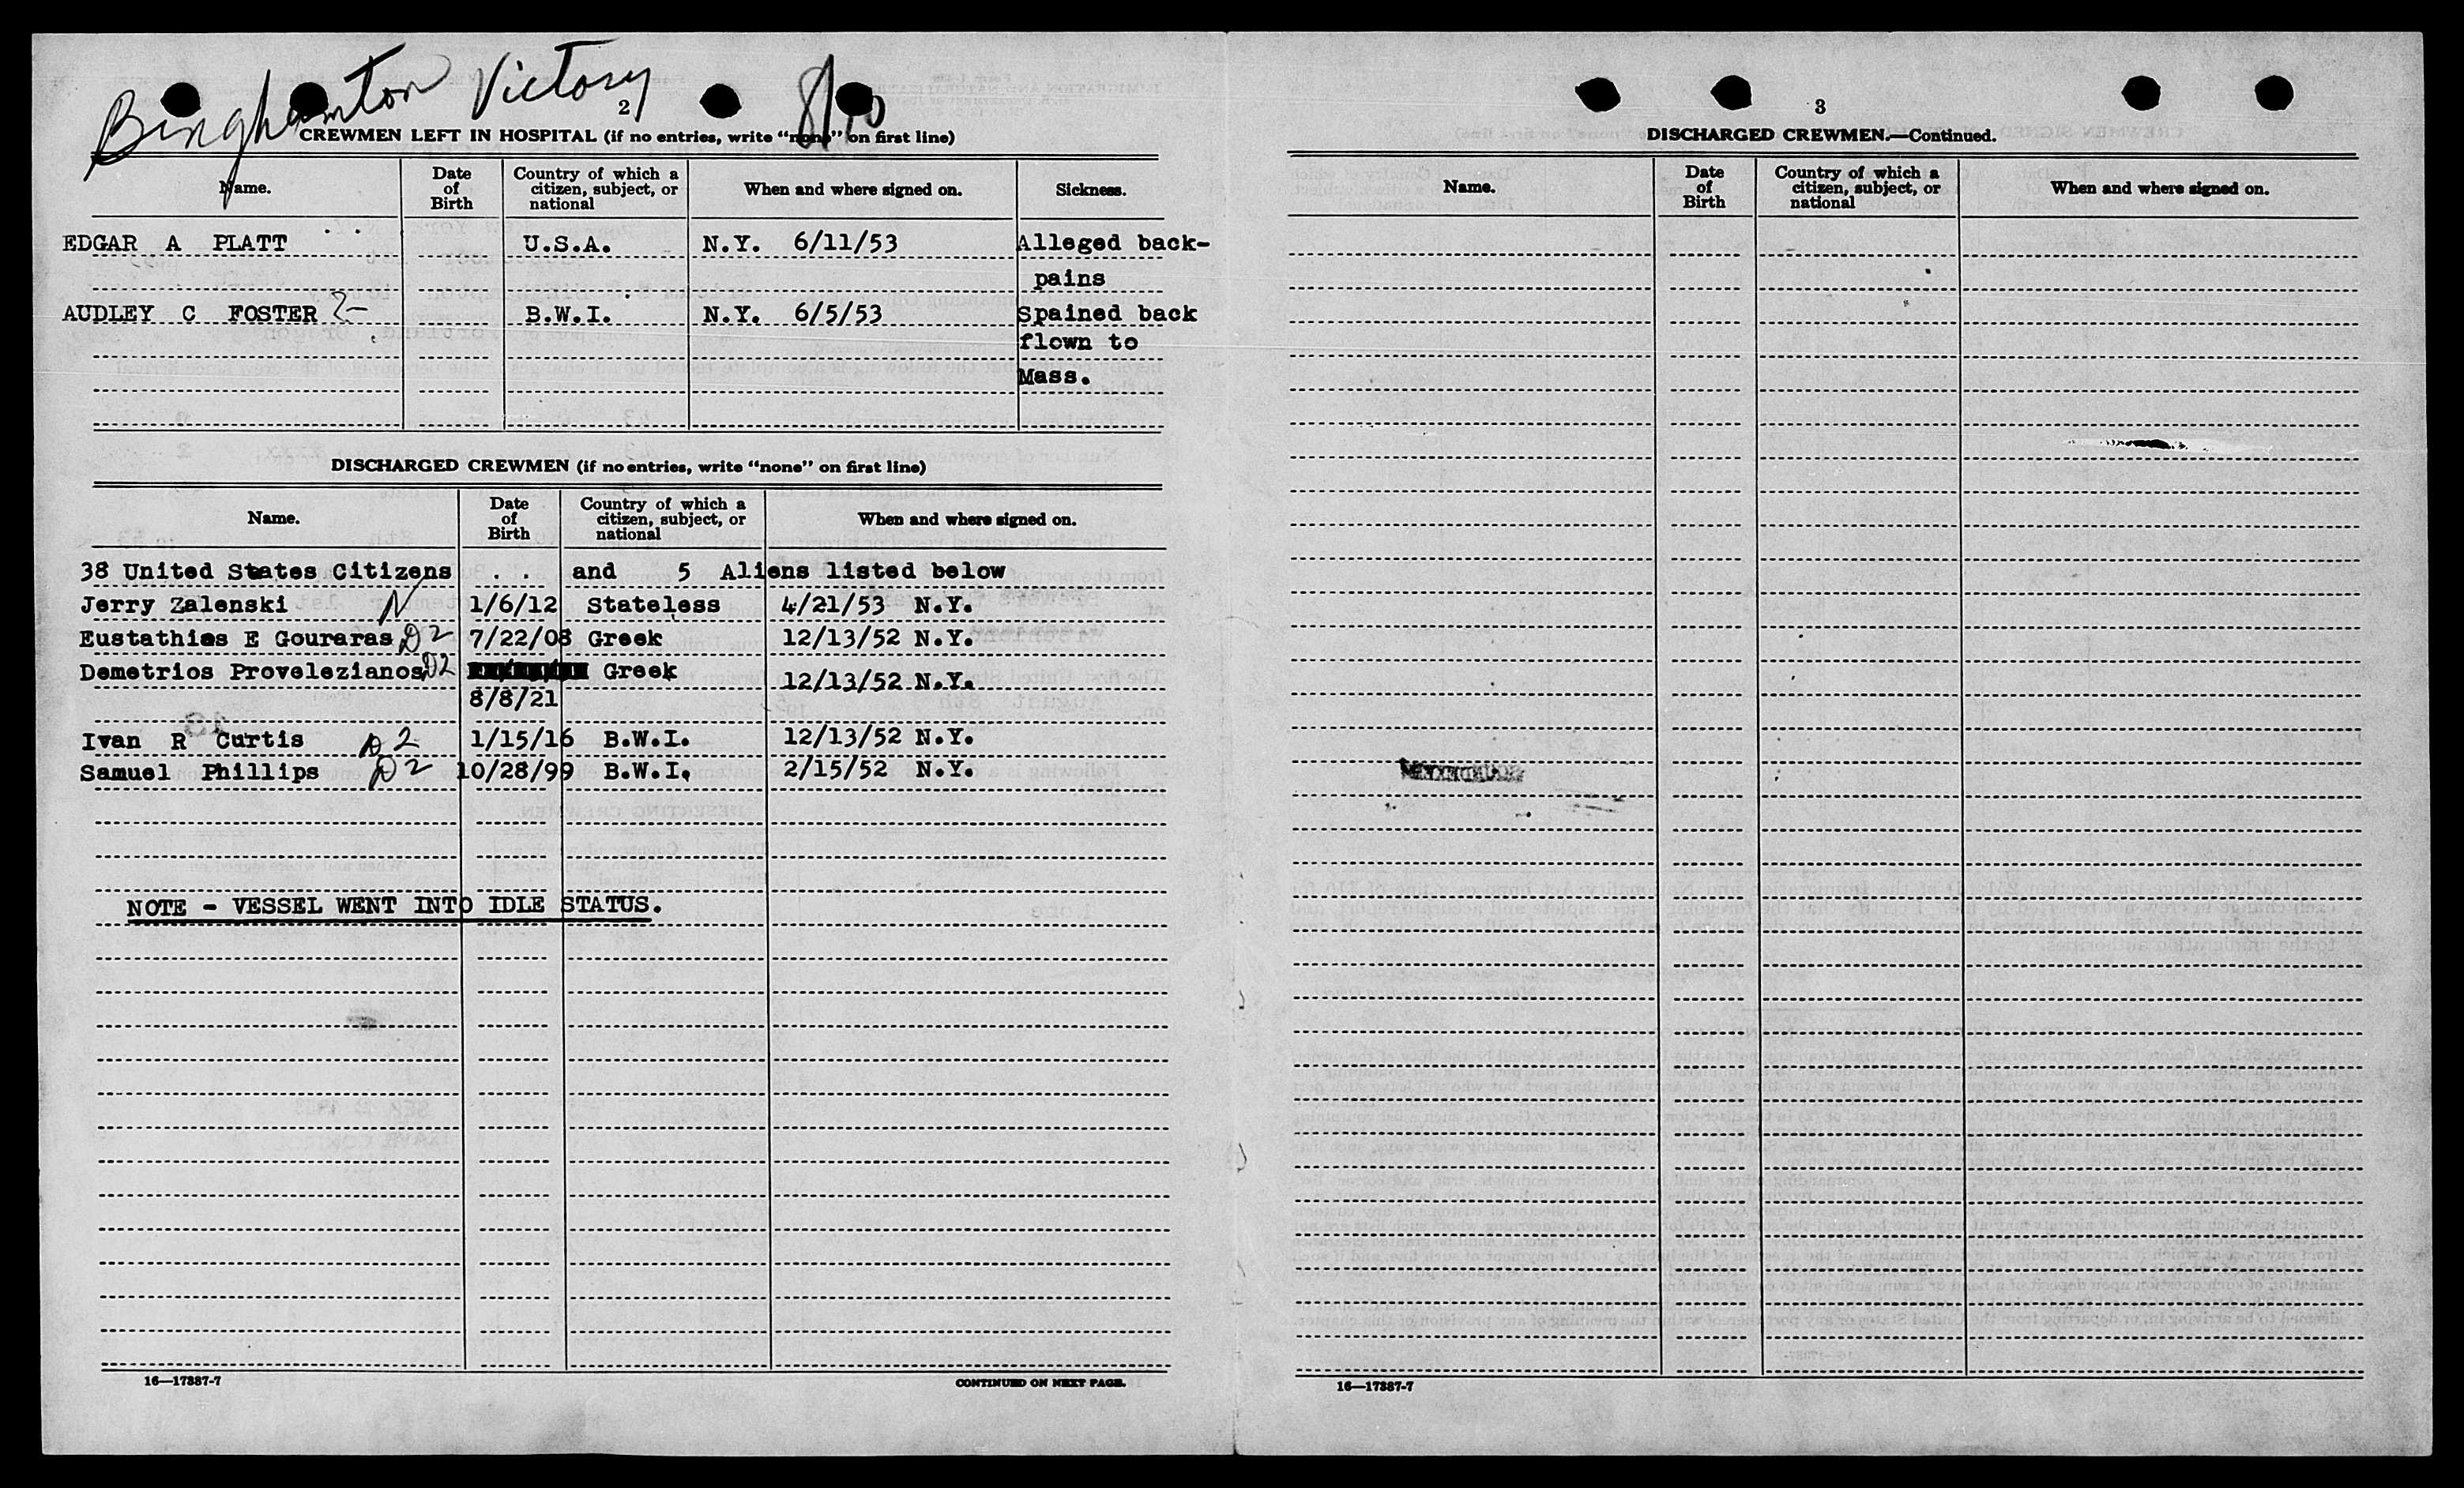 Binghamton Victory 8/10
2
CREWMEN LEFT IN HOSPITAL (if no entries, write "none" on first line)
Name. Date of Birth Country of which a citizen, subject, or national When and where signed on. Sickness.
EDGAR A PLATT U.S.A. N.Y. 6/11/53 Alleged back-
pains
AUDLEY C FOSTER B.W.I. N.Y. 6/5/53 Spained back
flown to
Mass.
DISCHARGED CREWMEN (if no entries, write "none" on first line)
Name. Date of Birth Country of which a citizen, subject, or national When and where signed on.
38 United States Citizens . . and 5 Aliens listed below
Jerry Zalenski N 1/6/12 Stateless 4/21/53 N.Y.
Eustathios E Gouraras D2 7/22/08 Greek 12/13/52 N.Y.
Demetrios Provelezianos D2 Greek 12/13/52 N.Y.
8/8/21
Ivan R Curtis D2 1/15/16 B.W.I. 12/13/52 N.Y.
Samuel Phillips D2 10/28/99 B.W.I. 2/15/52 N.Y.
NOTE - VESSEL WENT INTO IDLE STATUS.
16—17387-7 CONTINUED ON NEXT PAGE.
3
DISCHARGED CREWMEN.—Continued.
Name. Date of Birth Country of which a citizen, subject, or national When and where signed on.
16—17387-7